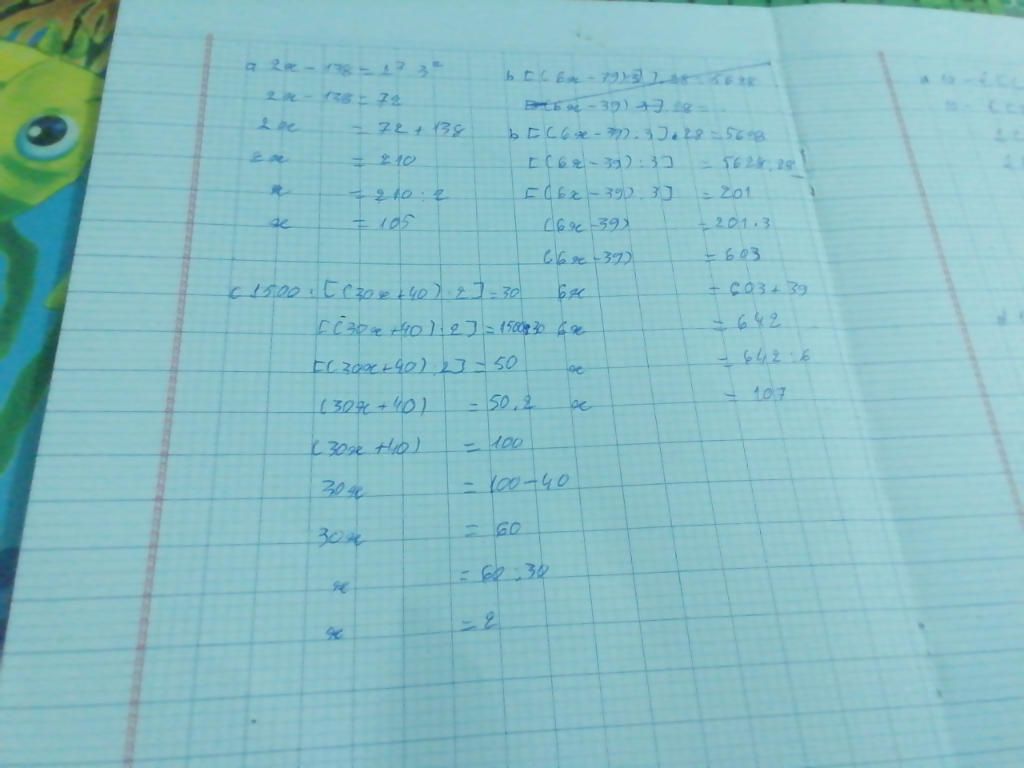 a 2x - 138 = 2³ 3²
2x - 138 = 72
2x = 72 + 138
2x = 210
x = 210 : 2
x = 105
b [(6x - 39) : 3] . 28 = 5628
[(6x - 39) : 3] . 28 =
b [(6x - 39) : 3] . 28 = 5628
[(6x - 39) : 3] = 5628 : 28
[(6x - 39) : 3] = 201
(6x - 39) = 201 . 3
(6x - 39) = 603
6x = 603 + 39
6x = 642
x = 642 : 6
x = 107
c 1500 : [(30x + 40) : 2] = 30
[(30x + 40) : 2] = 1500 : 30
[(30x + 40) : 2] = 50
(30x + 40) = 50 . 2
(30x + 40) = 100
30x = 100 - 40
30x = 60
x = 60 : 30
x = 2